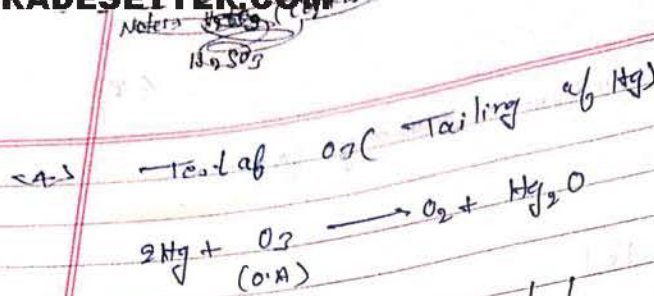 RADESETTER.COM
Note:
H2SO3
<4> Test of O3 ( Tailing of Hg)
2Hg + O3 → O2 + Hg2O
(O.A)